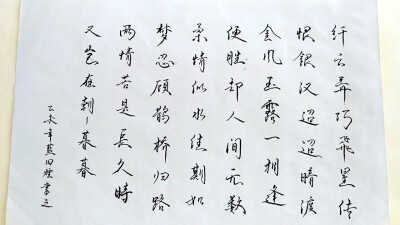 纤云弄巧飞星传
恨银汉迢迢暗渡
金风玉露一相逢
便胜却人间无数
柔情似水佳期如
梦忍顾鹊桥归路
两情若是长久时
又岂在朝々暮暮
乙未年蓝田书之